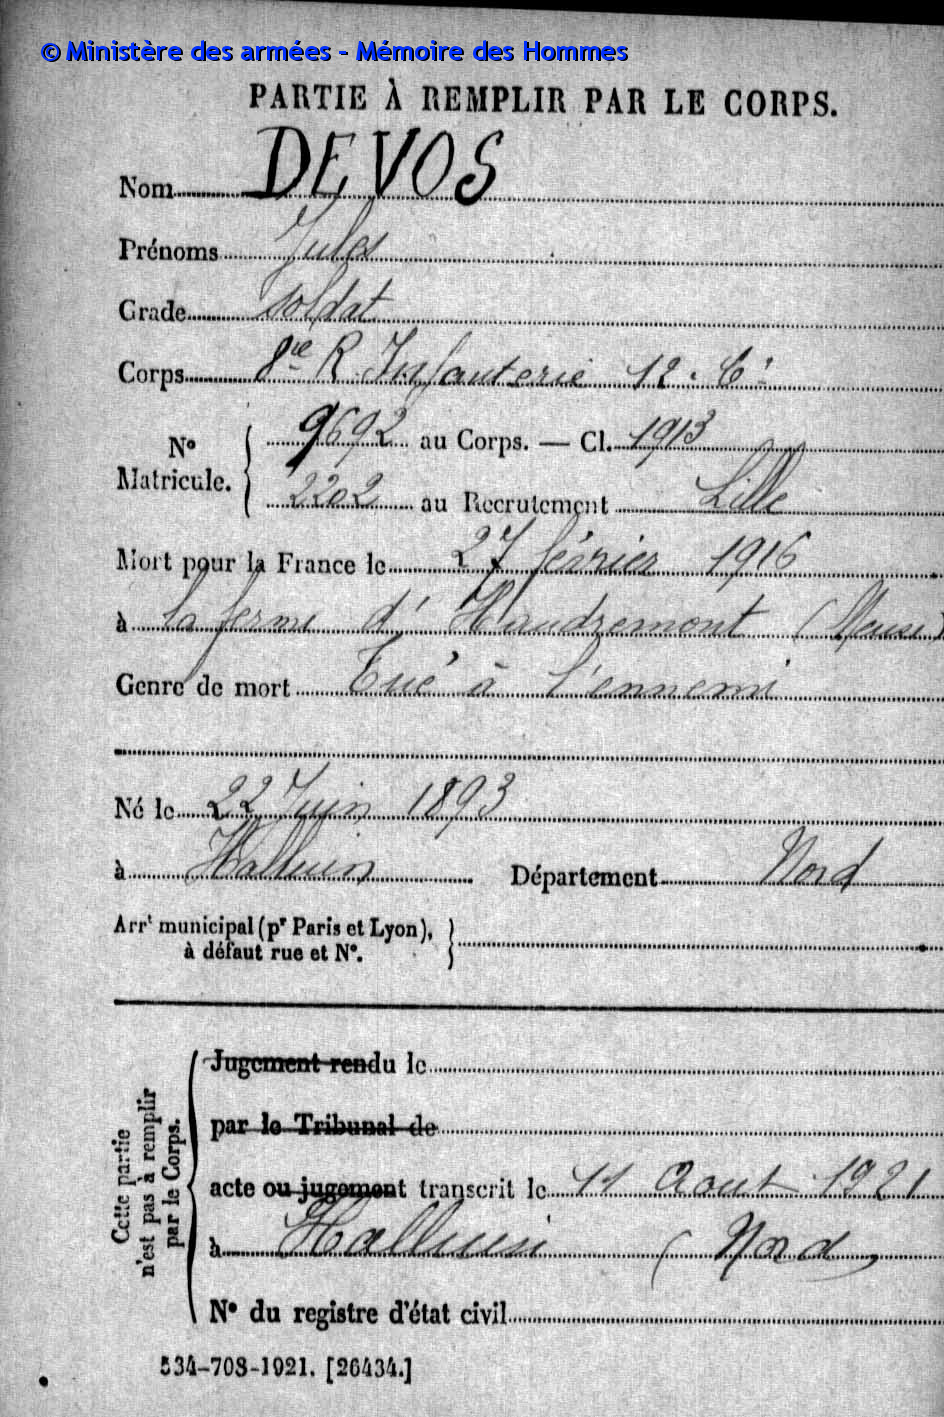 © Ministère des armées - Mémoire des Hommes
PARTIE À REMPLIR PAR LE CORPS.
Nom DEVOS
Prénoms Jules
Grade soldat
Corps 8me R Infanterie 12e Cie
No Matricule. { 9692 au Corps. — Cl. 1913
2202 au Recrutement Lille
Mort pour la France le 27 février 1916
à la ferme d'Haudremont (Meuse)
Genre de mort Tué à l'ennemi
Né le 22 Juin 1893
à Halluin Département Nord
Arrt municipal (pr Paris et Lyon), }
à défaut rue et No.
Cette partie
n'est pas à remplir
par le Corps.
Jugement rendu le
par le Tribunal de
acte ou jugement transcrit le 11 Aout 1921
à Halluin (Nord)
No du registre d'état civil
534-708-1921. [26434.]